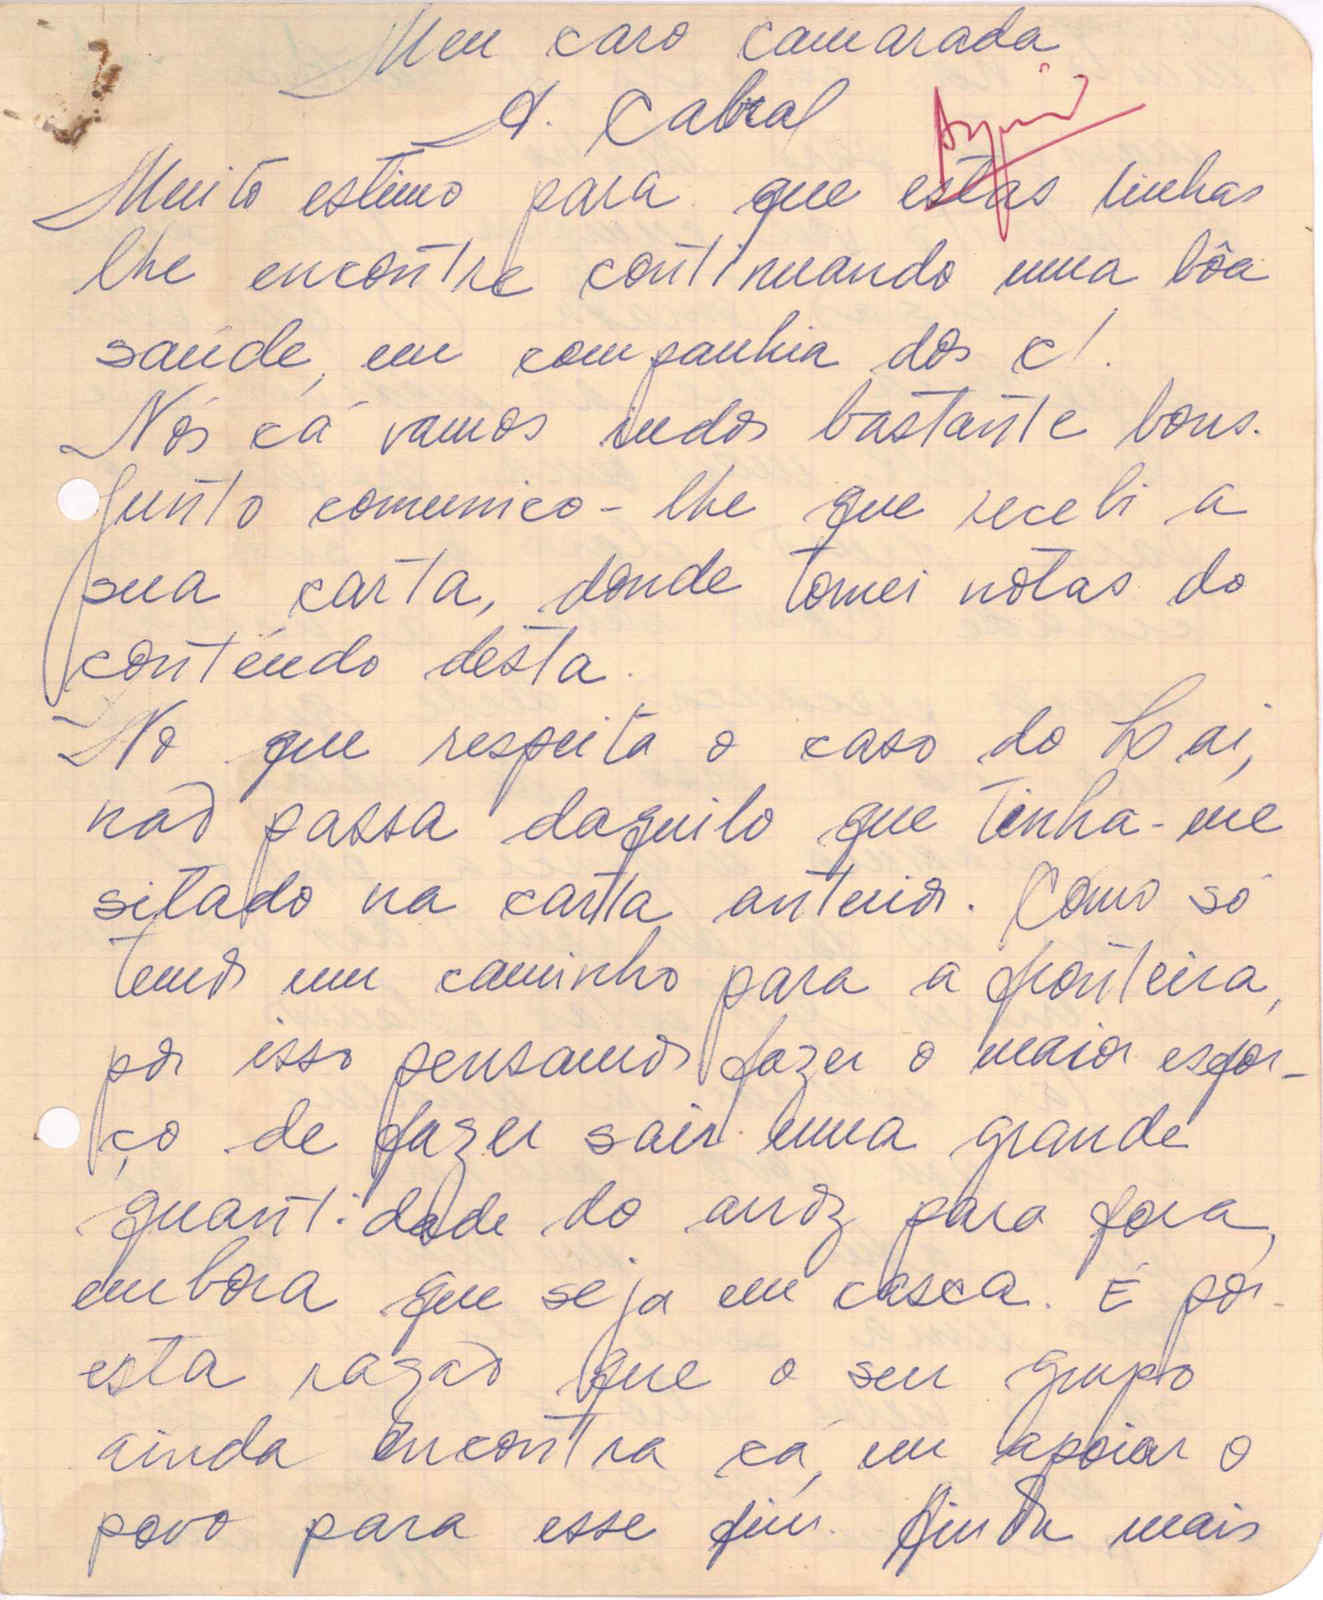 Meu caro camarada
A. Cabral
Muito estimo para que estas linhas
lhe encontre continuando uma bôa
saúde, em companhia dos c/.
Nós cá vamos indos bastante bons.
Junto comunico-lhe que recebi a
sua carta, donde tomei notas do
contéudo desta.
No que respeita o caso do Lai,
não passa daquilo que tinha-me
sitado na carta anterior. Como só
temos um caminho para a fronteira,
por isso pensamos fazer o maior esfor-
ço de fazer sair uma grande
quantidade do arroz para fora,
embora que seja em casca. É por
esta razão que o seu grupo
ainda encontra cá, em apoiar o
povo para esse fim. Ainda mais